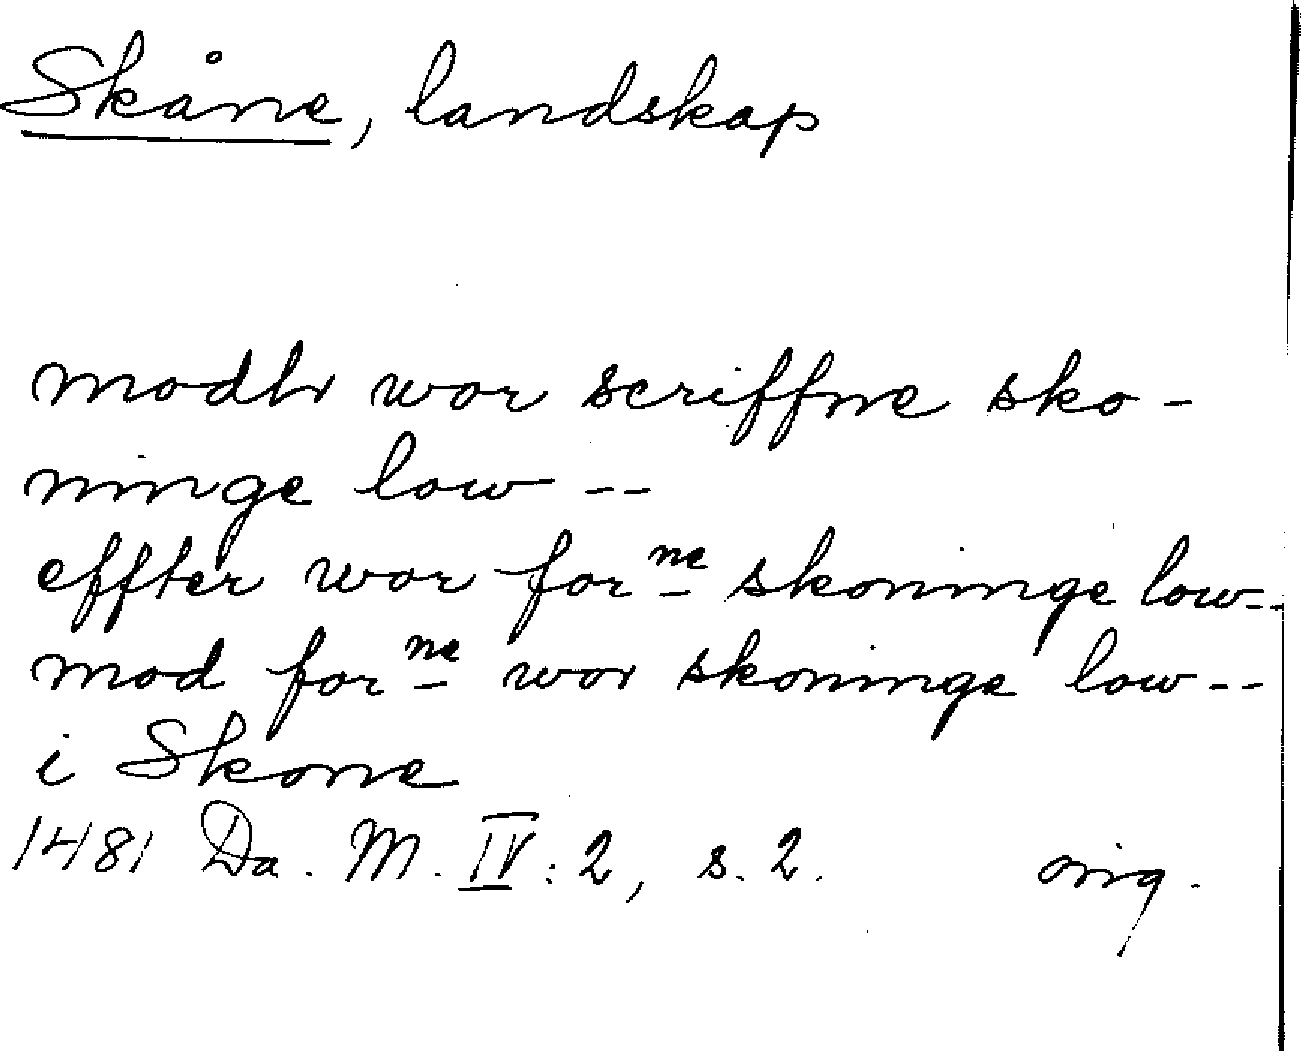 Skåne, landskap
modhr wor scriffne sko-
ninge low --
effter wor forne skoninge low--
mod forne wor skoninge low --
i Skone
1481 Da. M. IV: 2, s. 2. orig.